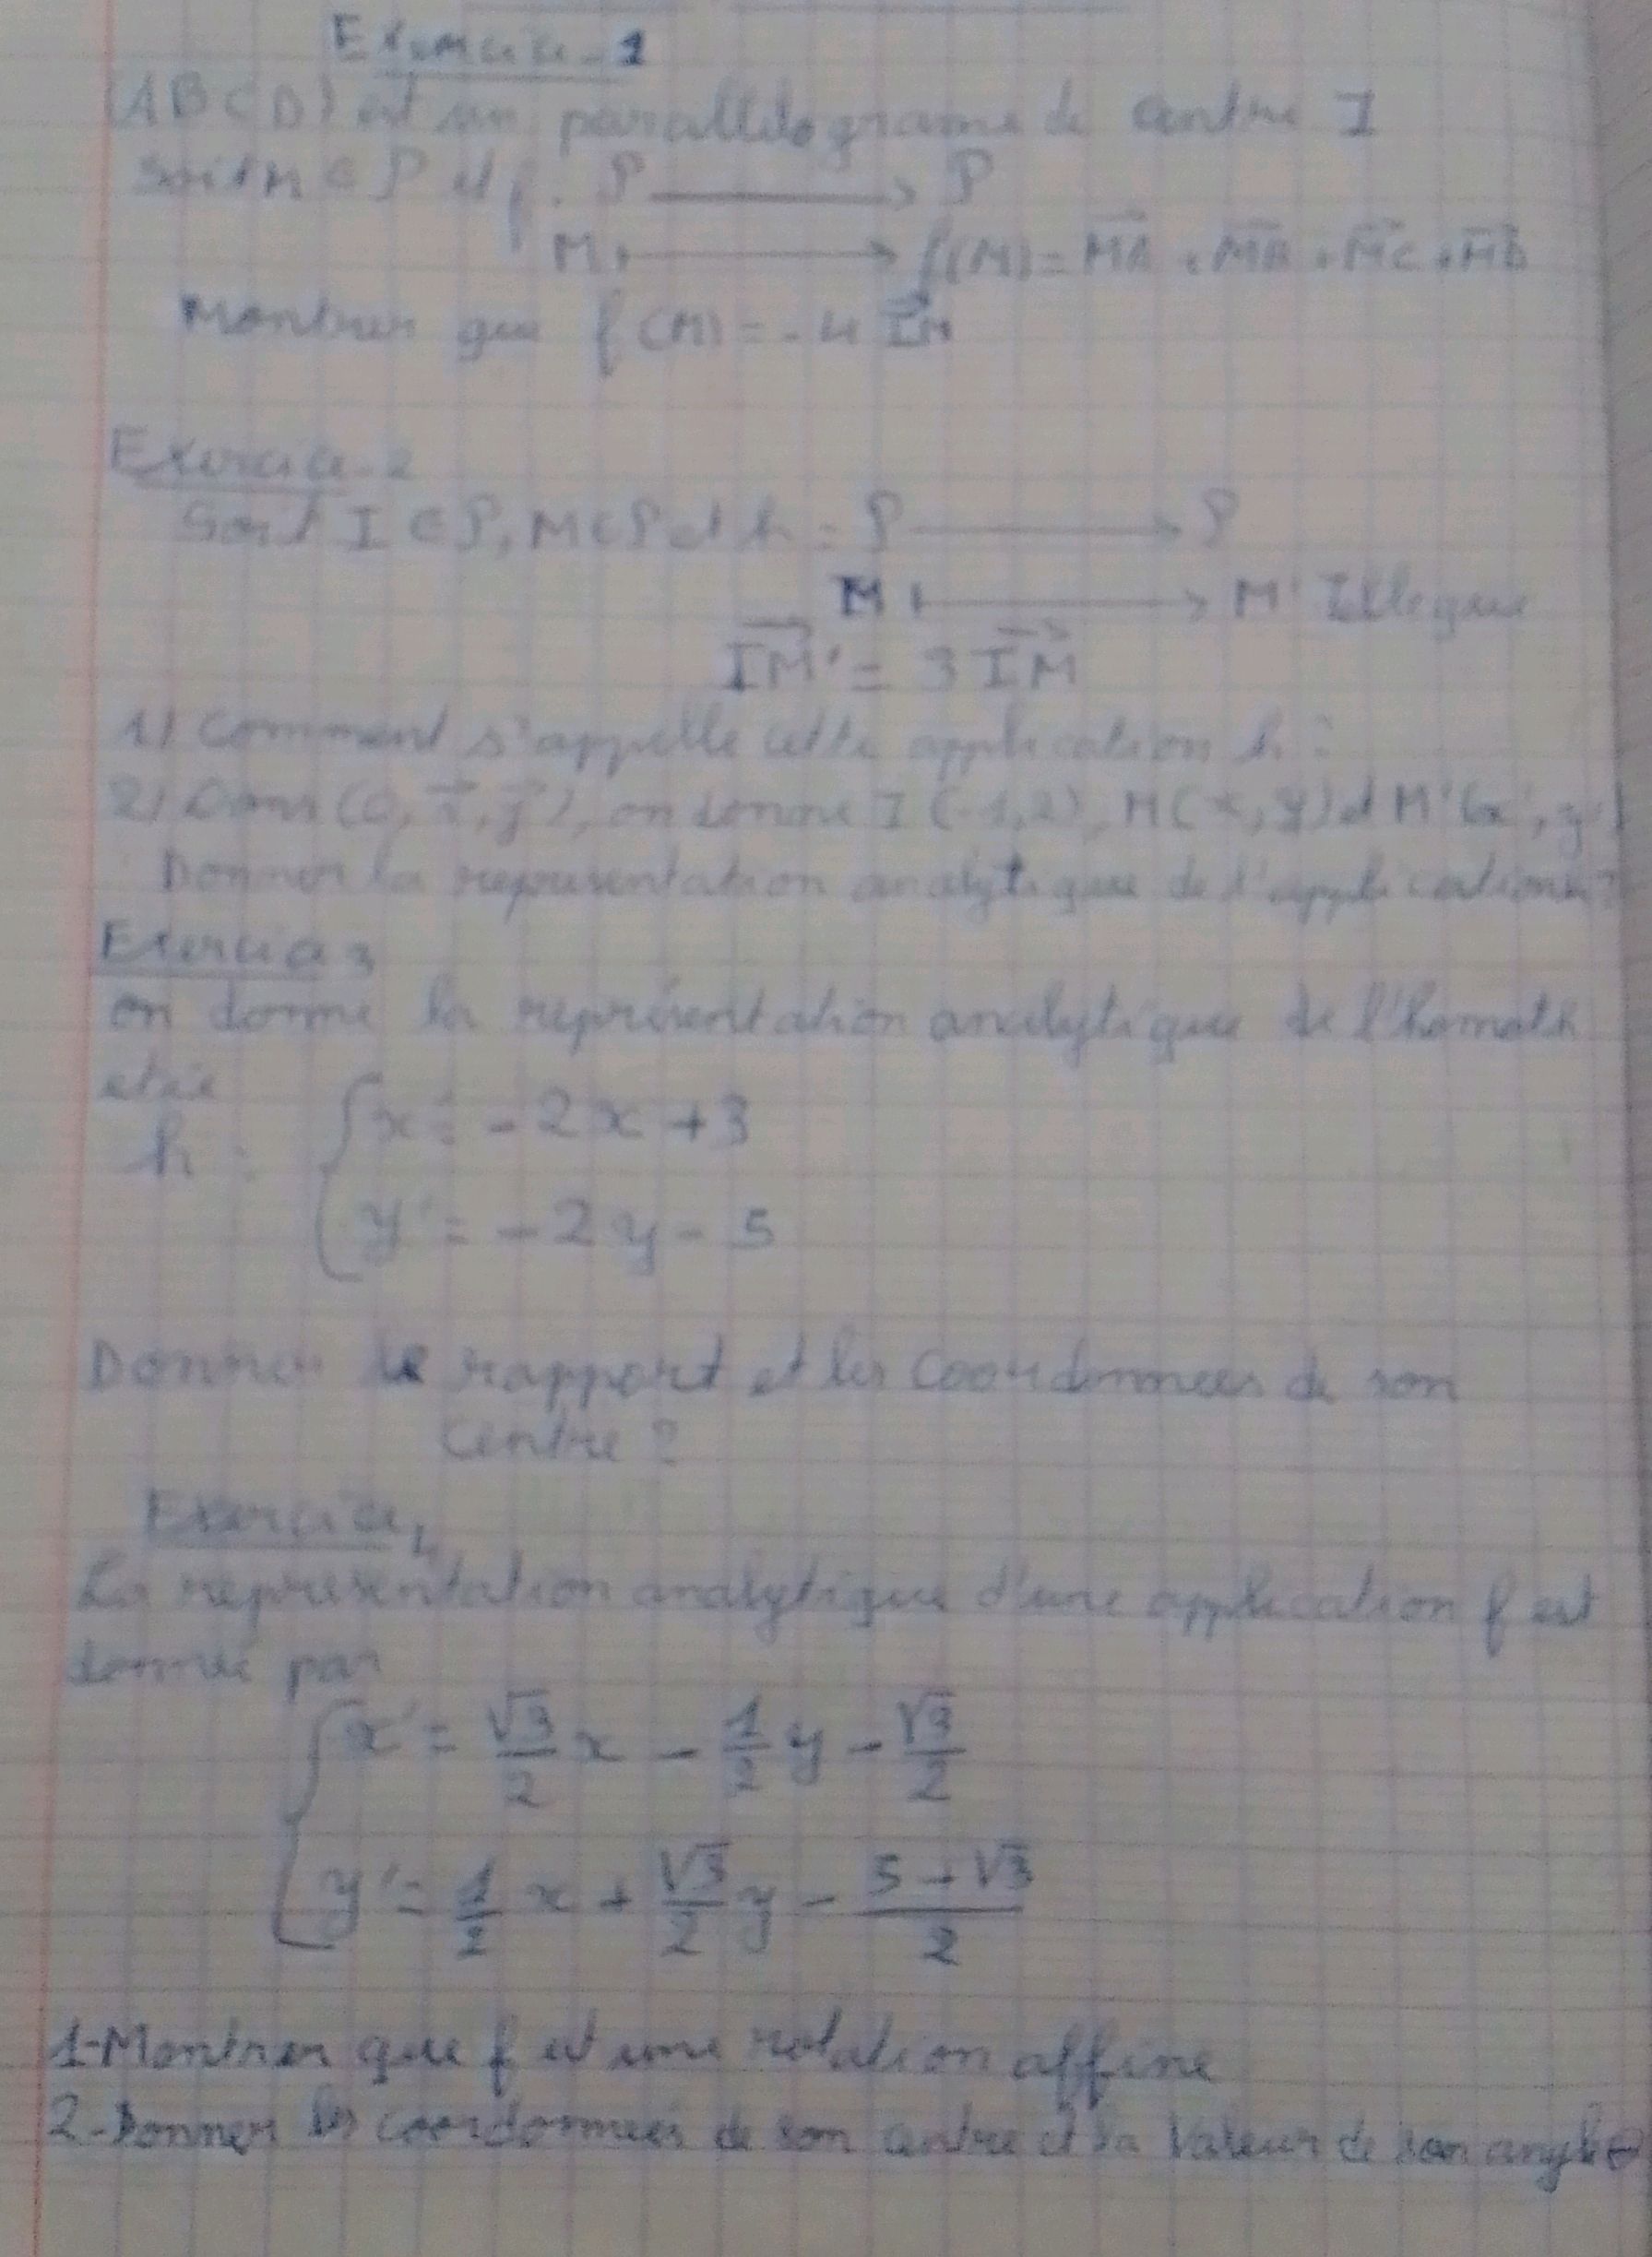 Exercice-1
(ABCD) est un parallélograme de centre I
Soit M ∈ P et f: P → P
M ↦ f(M) = MA + MB + MC + MD
Montrer que f(M) = -4 IM
Exercice-2
Soit I ∈ P, M ∈ P et h = P → P
M ↦ M' telle que
IM' = 3 IM
1) Comment s'appelle cette application h?
2) Dans (O, i, j), on donne I(-1,2), M(x,y) et M'(x', y')
Donner la représentation analytique de l'application h?
Exercice 3
on donne la représentation analytique de l'homoth
etie
h: { x' = -2x + 3
y' = -2y - 5
Donner le rapport et les coordonnées de son
centre?
Exercice 4
La représentation analytique d'une application f est
donnée par
{ x' = √3/2 x - 1/2 y - √3/2
y' = 1/2 x + √3/2 y - 5-√3/2
1-Montrer que f est une rotation affine
2-Donner les coordonnées de son centre et la valeur de son angle θ